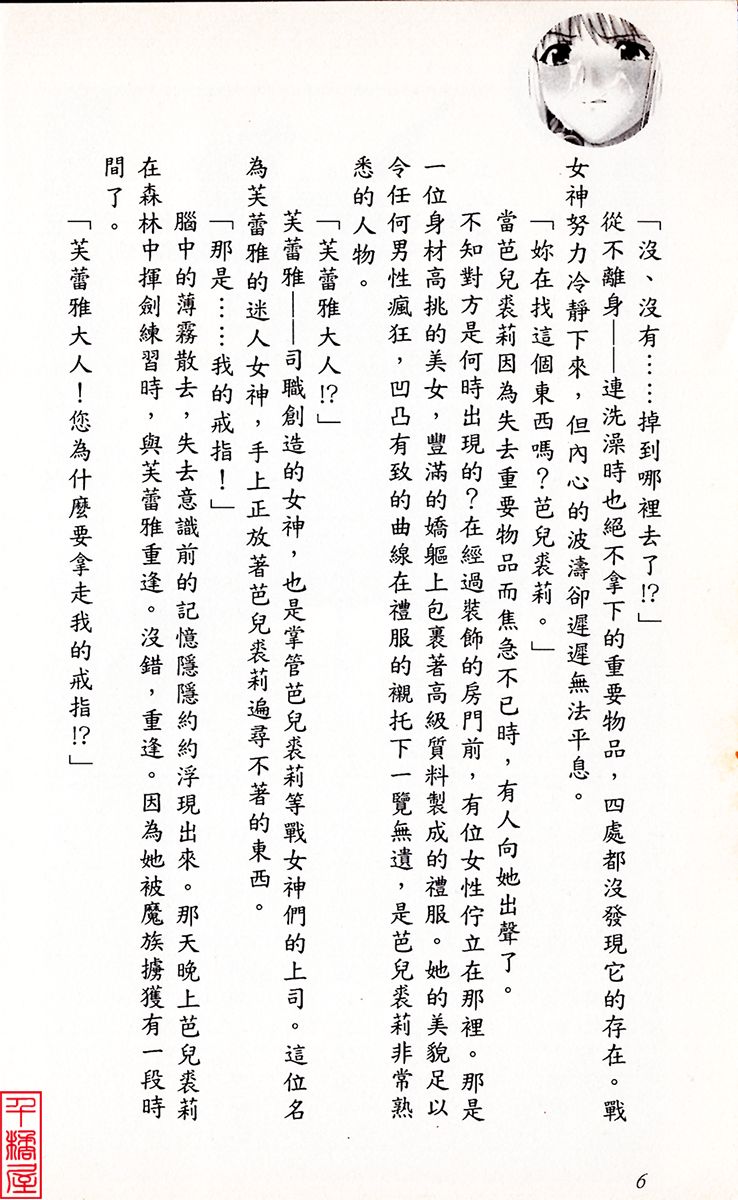 「沒、沒有⋯⋯掉到哪裡去了!?」
從不離身——連洗澡時也絕不拿下的重要物品，四處都沒發現它的存在。戰
女神努力冷靜下來，但內心的波濤卻遲遲無法平息。
「妳在找這個東西嗎？芭兒裘莉。」
當芭兒裘莉因為失去重要物品而焦急不已時，有人向她出聲了。
不知對方是何時出現的？在經過裝飾的房門前，有位女性佇立在那裡。那是
一位身材高挑的美女，豐滿的嬌軀上包裹著高級質料製成的禮服。她的美貌足以
令任何男性瘋狂，凹凸有致的曲線在禮服的襯托下一覽無遺，是芭兒裘莉非常熟
悉的人物。
「芙蕾雅大人!?」
芙蕾雅——司職創造的女神，也是掌管芭兒裘莉等戰女神們的上司。這位名
為芙蕾雅的迷人女神，手上正放著芭兒裘莉遍尋不著的東西。
「那是⋯⋯我的戒指！」
腦中的薄霧散去，失去意識前的記憶隱隱約約浮現出來。那天晚上芭兒裘莉
在森林中揮劍練習時，與芙蕾雅重逢。沒錯，重逢。因為她被魔族擄獲有一段時
間了。
「芙蕾雅大人！您為什麼要拿走我的戒指!?」
6
千橘屋